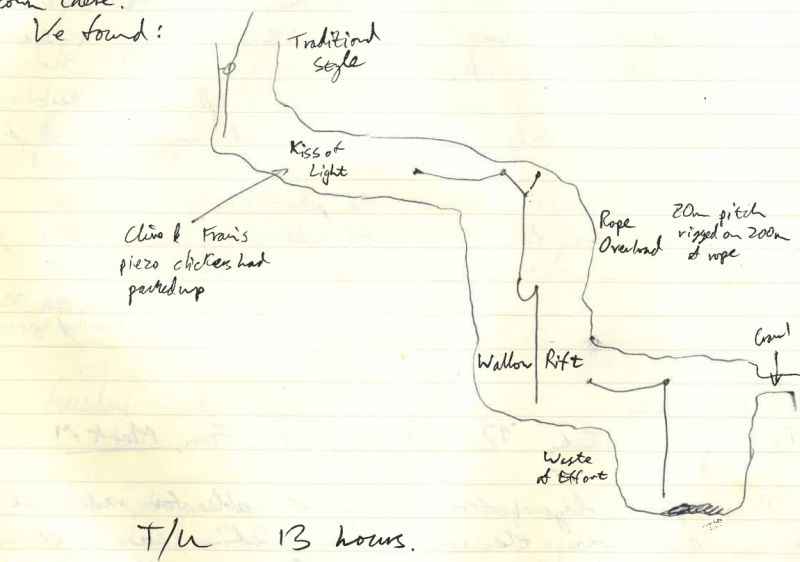 down there.
We found:
Traditional
Style
Kiss of
Light
Clive & Fran's
piezo clickers had
packed up
Rope
Overload
20m pitch
rigged on 200m
of rope
Crawl
Wallow Rift
Waste
of Effort
T/U 13 hours.